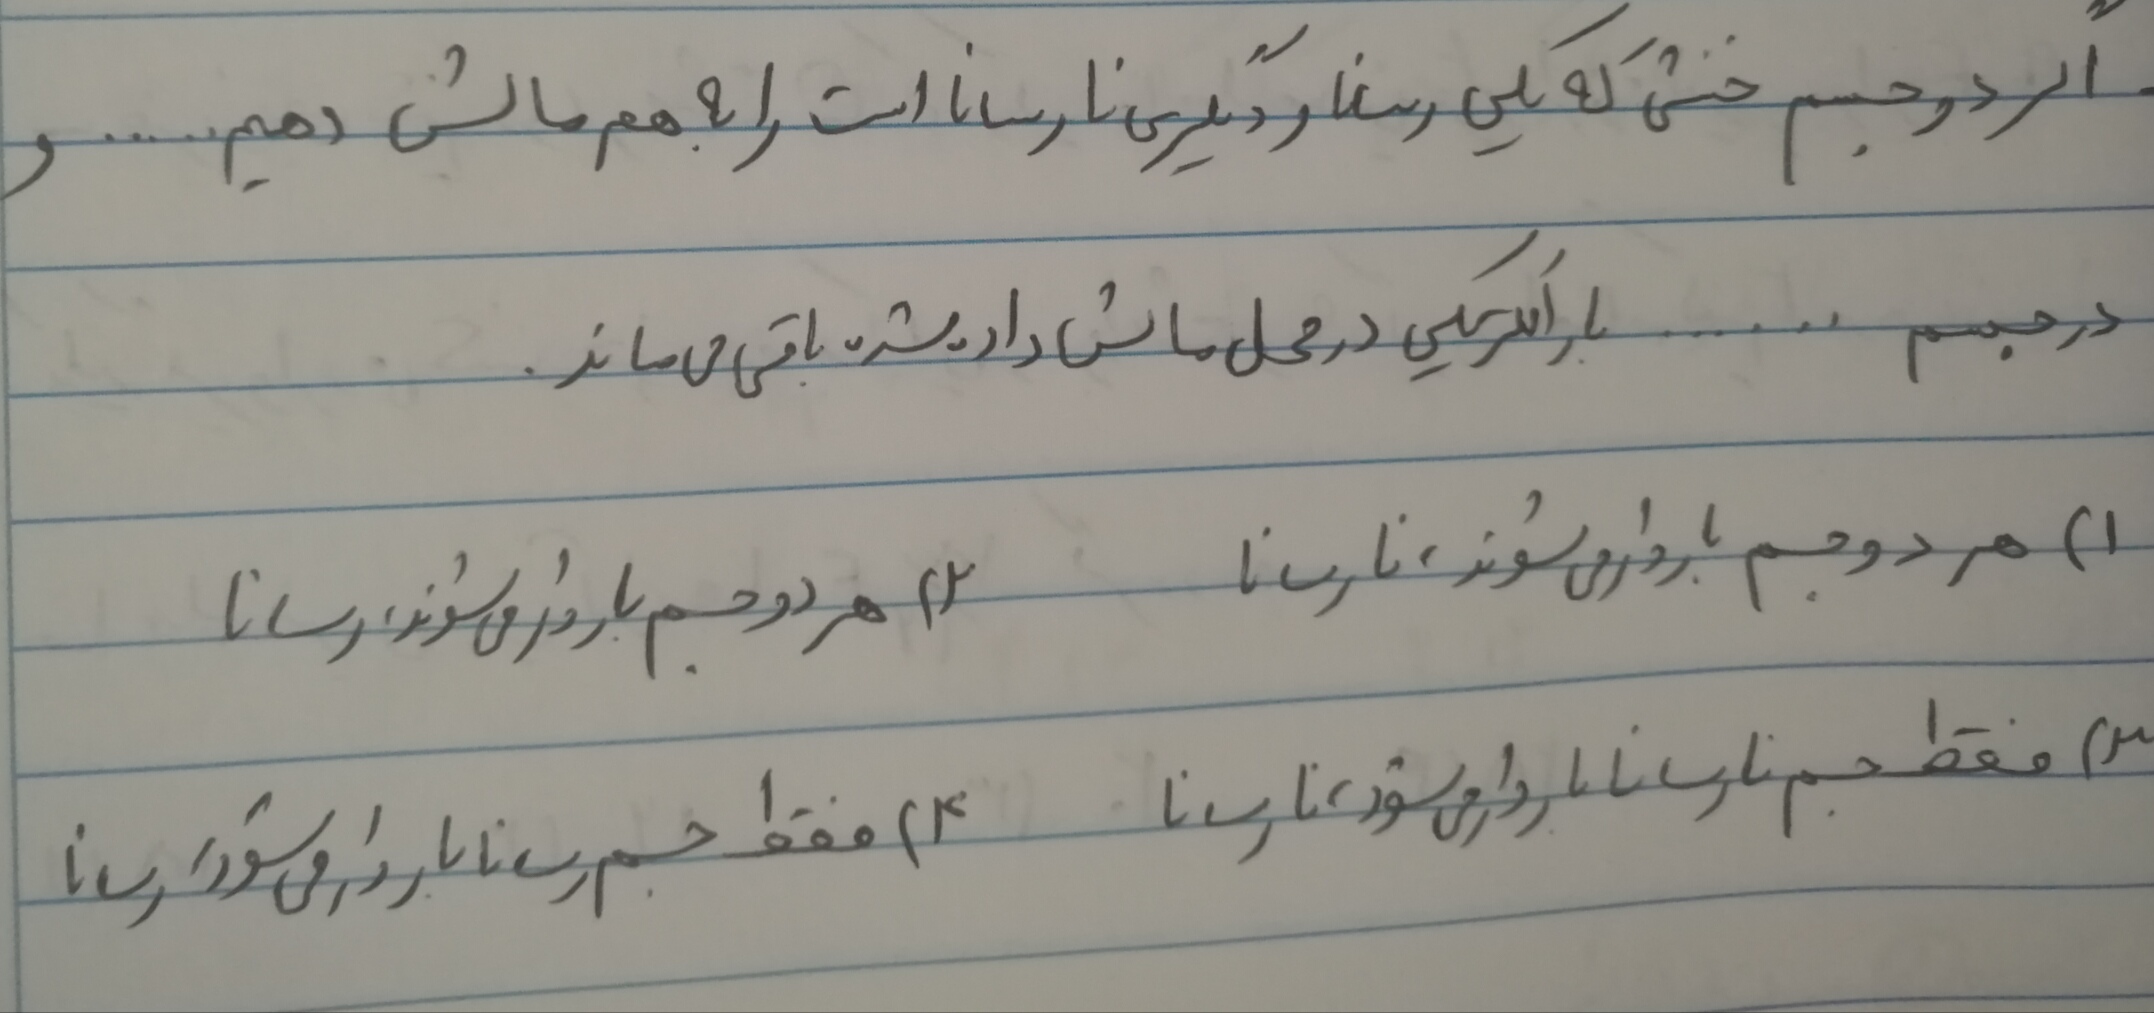 اگر دو جسم خنثی که یکی رسانا و دیگری نارسانا است را به هم مالش دهیم ..... و
در جسم ...... بار الکتریکی در محل مالش داده شده باقی می ماند.
۱) هر دو جسم باردار می شوند، نارسانا ۲) هر دو جسم باردار می شوند، رسانا
۳) فقط جسم نارسانا باردار می شود، نارسانا ۴) فقط جسم رسانا باردار می شود، رسانا